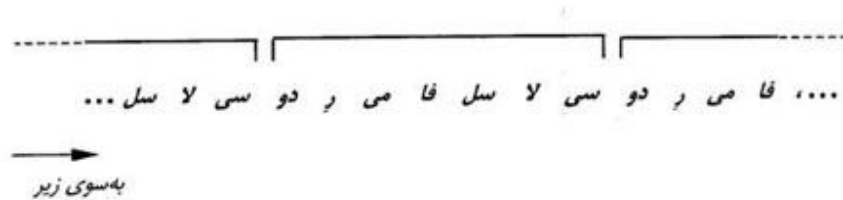 ...، فا می رِ دو سی لا سل فا می رِ دو سی لا سل ...
به‌سوی زیر